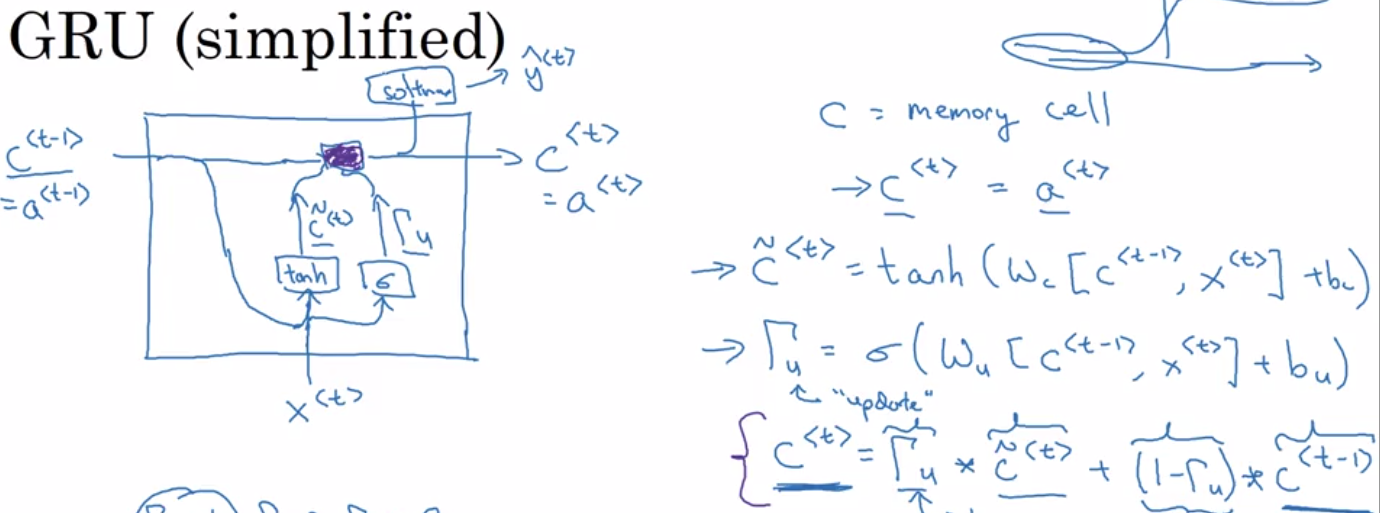 GRU (simplified)
softmax
ŷ<t>
c<t-1>
= a<t-1>
c<t>
= a<t>
c̃<t>
Γu
tanh
σ
x<t>
C = memory cell
→ c<t> = a<t>
→ c̃<t> = tanh (Wc [c<t-1>, x<t>] + bc)
→ Γu = σ (Wu [c<t-1>, x<t>] + bu)
"update"
c<t> = Γu * c̃<t> + (1-Γu) * c<t-1>